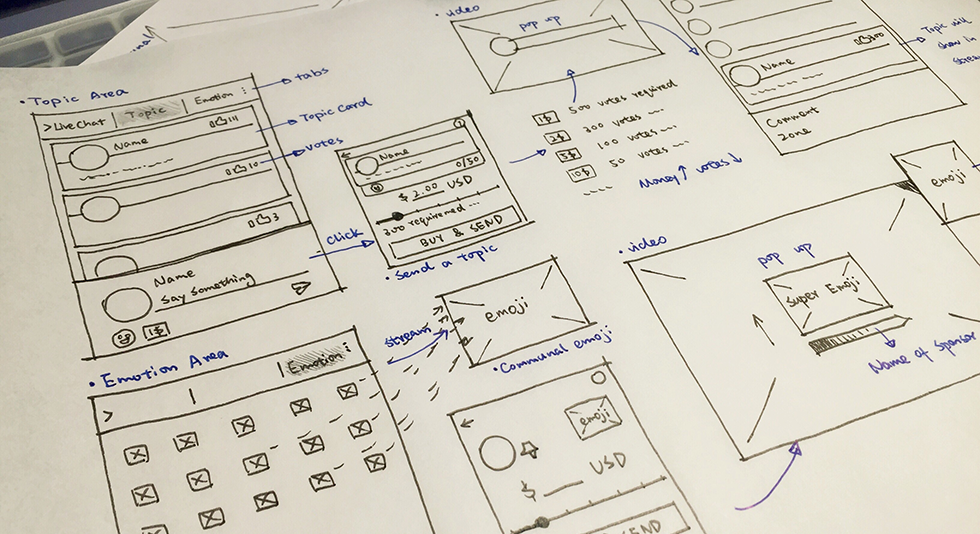 • Topic Area
tabs
> Live Chat
Topic
Emotion
Name
14
Topic Card
10
votes
3
Name
Say something
1$
click
Name
0/50
$ 2.00 USD
200 requiremed ...
BUY & SEND
• Send a topic
• video
pop up
1$ 500 votes required
2$ 200 votes ...
5$ 100 votes ...
10$ 50 votes ...
Money ↑ votes ↓
Name
Topic will
show in
Comment
zone
• Emotion Area
Emotion
>
stream
emoji
• Communal emoji
emoji
$ USD
• video
pop up
Super Emoji
Name of Sponsor
emoji